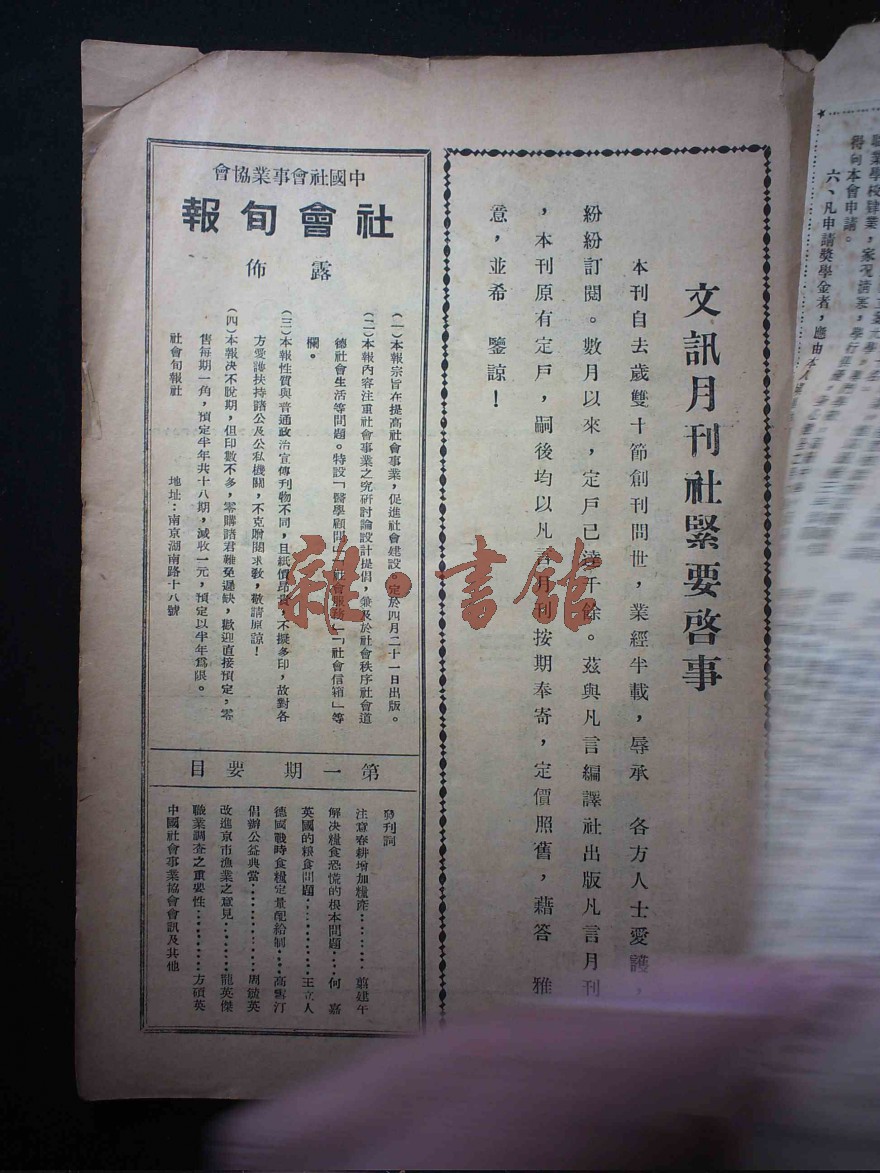 得向本會申請。
六、凡申請獎學金者，應由本人
文訊月刊社緊要啓事
本刊自去歲雙十節創刊問世，業經半載，辱承　各方人士愛護，
紛紛訂閱。數月以來，定戶已達千餘。茲與凡言編譯社出版凡言月刊
，本刊原有定戶，嗣後均以凡言月刊按期奉寄，定價照舊，藉答　雅
意，並希　鑒諒！
中國社會事業協會
社會旬報
露佈
(一)本報宗旨在提高社會事業，促進社會建設。定於四月二十一日出版。
(二)本報內容注重社會事業之究研討論設計提倡，兼及於社會秩序社會道
德社會生活等問題。特設「醫學顧問」「社會服務」「社會信箱」等
欄。
(三)本報性質與普通政治宣傳刊物不同，且紙價昂貴，不擬多印，故對各
方愛護扶持諸公及公私機關，不克贈閱求教，敬請原諒！
(四)本報決不脫期，但印數不多，零購諸君難免遲缺，歡迎直接預定，零
售每期一角，預定半年共十八期，減收一元，預定以半年爲限。
社會旬報社　地址：南京湖南路十八號
第一期要目
發刊詞
注意春耕增加糧產………翦建午
解決糧食恐慌的根本問題…何　嘉
英國的糧食問題…………王立人
德國戰時食糧定量配給制…高雪汀
倡辦公益典當……………周毓英
改進京市漁業之意見………龍英傑
職業調查之重要性…………方碩英
中國社會事業協會會訊及其他
雜·書館